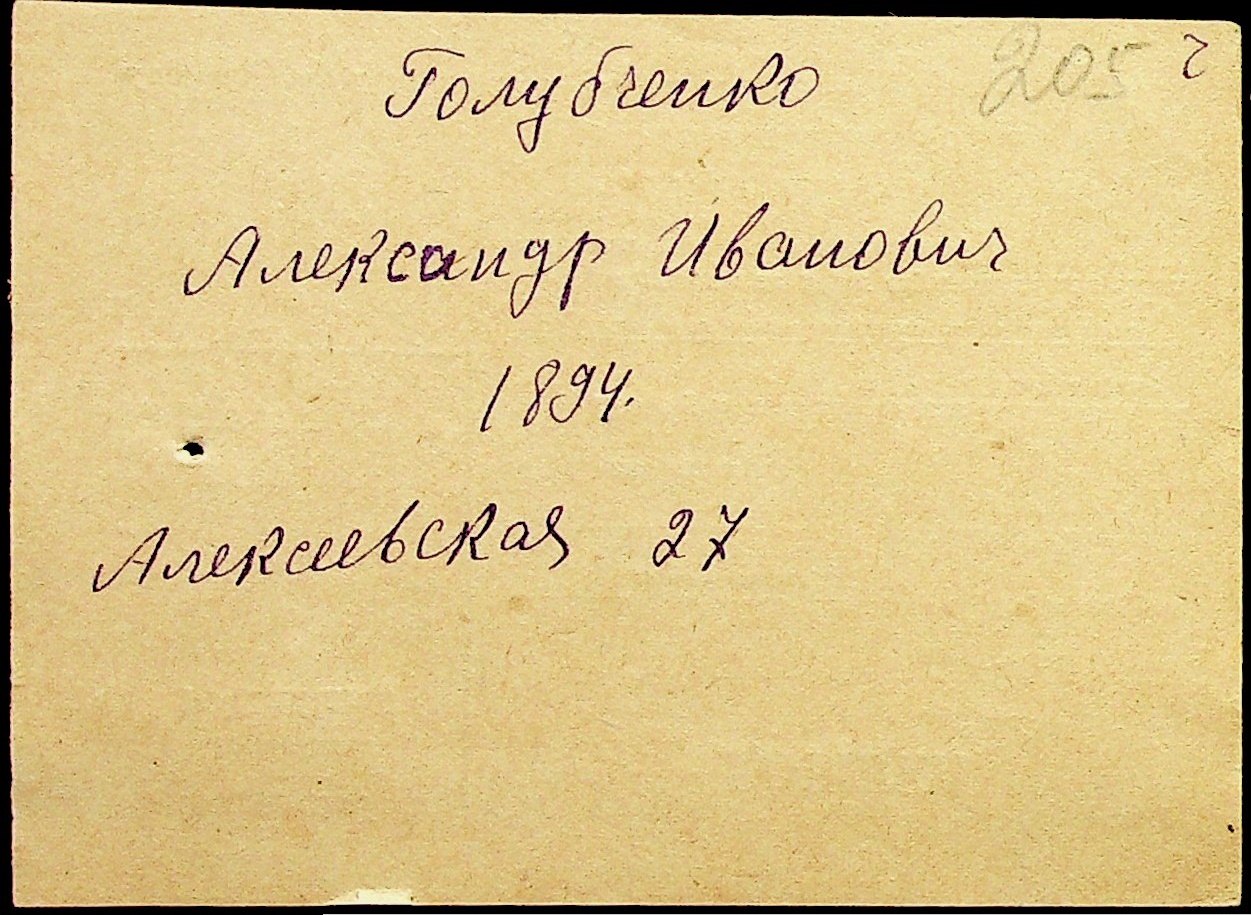 Голубченко 205 ч
Александр Иванович
1894.
Алексеевская 27